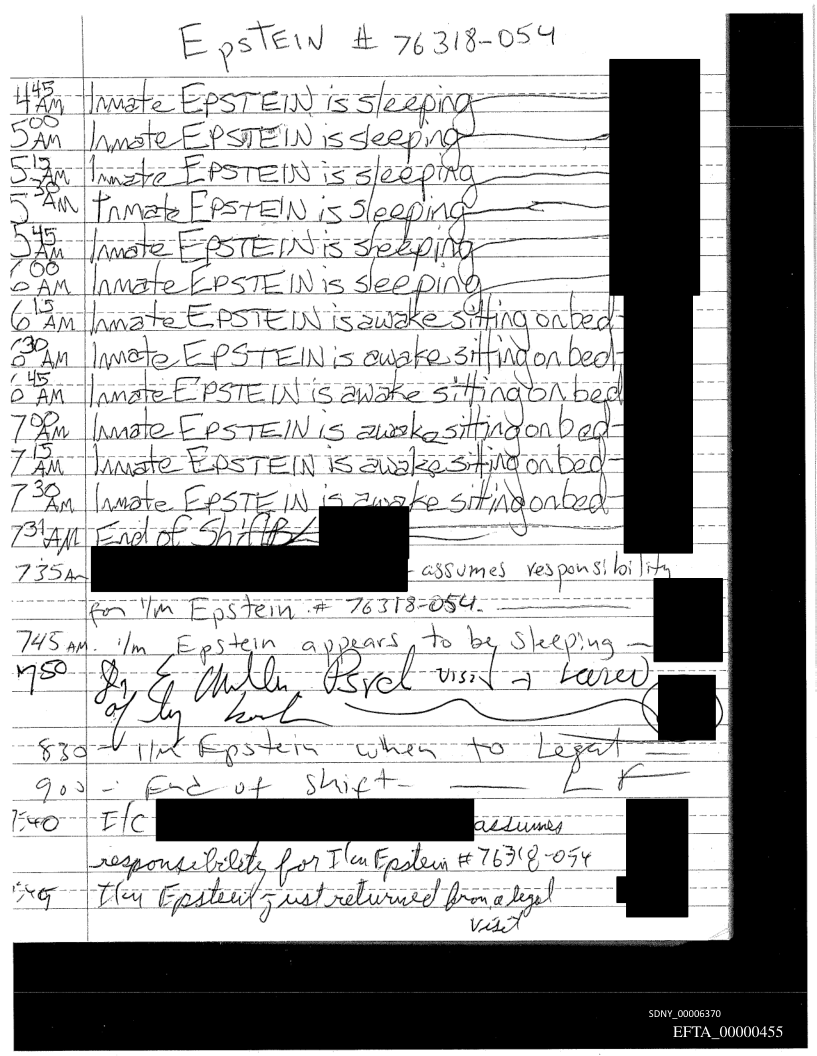 EpsTEIN # 76318-054
4 45 AM Inmate EPSTEIN is sleeping
5 00 AM Inmate EPSTEIN is sleeping
5 15 AM Inmate EPSTEIN is sleeping
5 30 AM Inmate EPSTEIN is sleeping
5 45 AM Inmate EPSTEIN is sleeping
6 00 AM Inmate EPSTEIN is sleeping
6 15 AM Inmate EPSTEIN is awake sitting on bed
6 30 AM Inmate EPSTEIN is awake sitting on bed
6 45 AM Inmate EPSTEIN is awake sitting on bed
7 00 AM Inmate EPSTEIN is awake sitting on bed
7 15 AM Inmate EPSTEIN is awake sitting on bed
7 30 AM Inmate EPSTEIN is awake sitting on bed
7 31 AM End of Shift
735 Am assumes responsibility
for I/m Epstein # 76318-054.
745 AM. I/m Epstein appears to be sleeping
750 visit
of
830 - I/m Epstein when to Legal
900 - End of shift-
:40 I/C assumes
responsibility for I/m Epstein # 76318-054
I/m Epstein just returned from a legal
visit
SDNY_00006370
EFTA_00000455